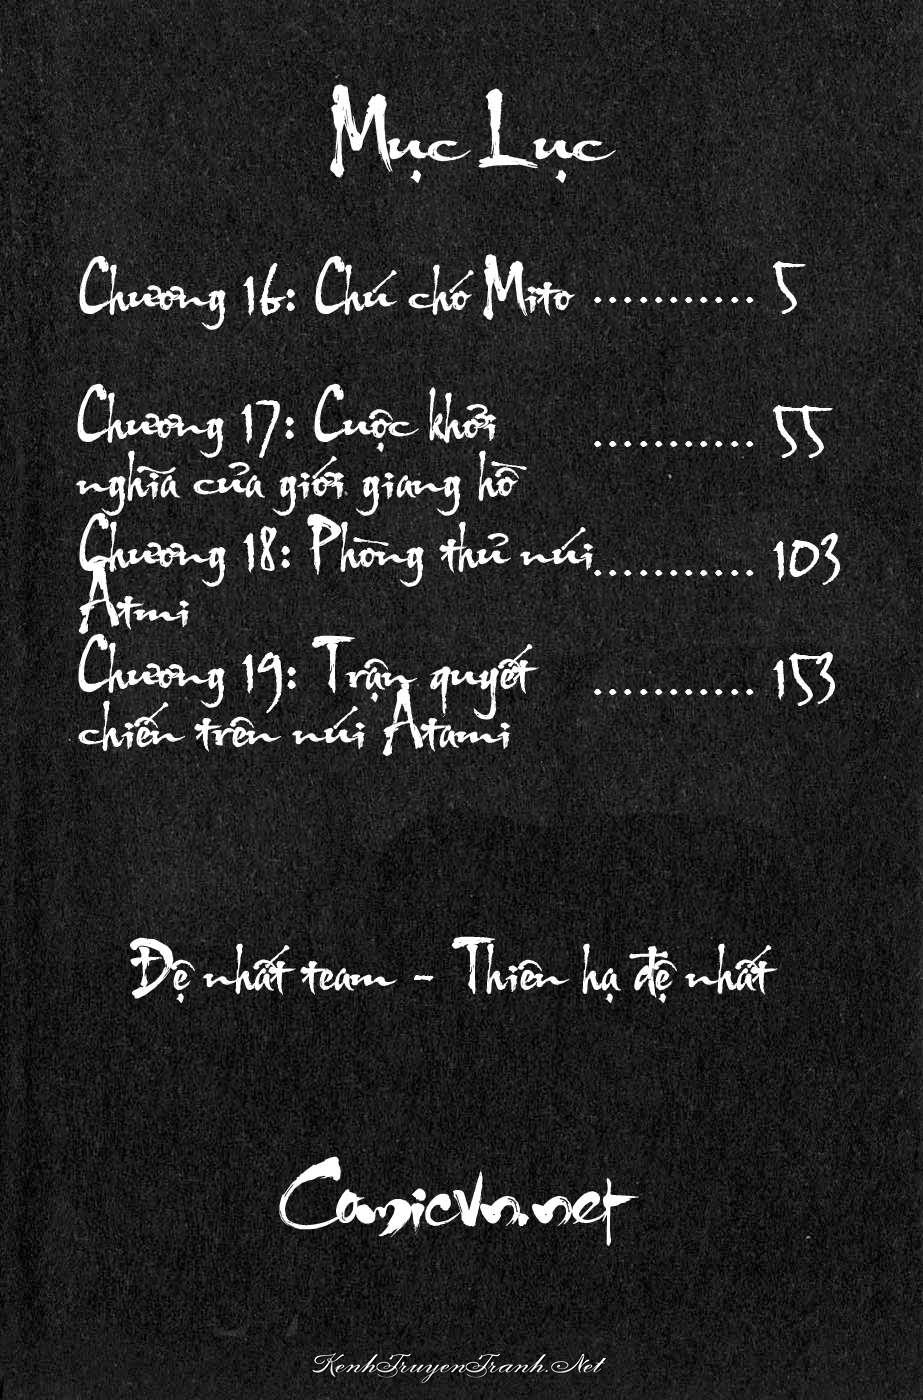 Mục Lục
Chương 16: Chú chó Mito ........... 5
Chương 17: Cuộc khởi ........... 55
nghĩa của giới giang hồ
Chương 18: Phòng thủ núi ........... 103
Atmi
Chương 19: Trận quyết ........... 153
chiến trên núi Atami
Đệ nhất team - Thiên hạ đệ nhất
Comicvn.net
KenhTruyenTranh.Net